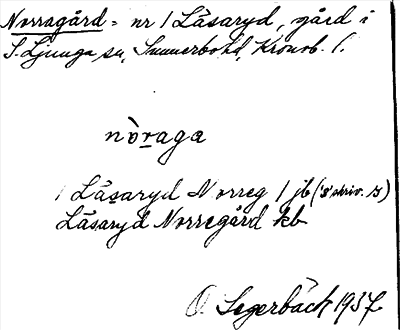 Norragård = nr 1 Låsaryd, gård i
S. Ljunga sn, Sunnerbo hd, Kronob. l.
nòraga
1 Låsaryd Norreg 1 jb ('s' skriv. z)
Låsaryd Norregård kb
O. Segerbäck 1937